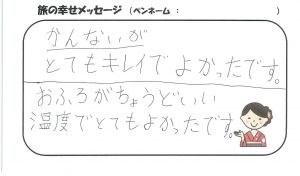 旅の幸せメッセージ （ペンネーム ： ）
かんないが
とてもキレイでよかったです。
おふろがちょうどいい
温度でとてもよかったです。